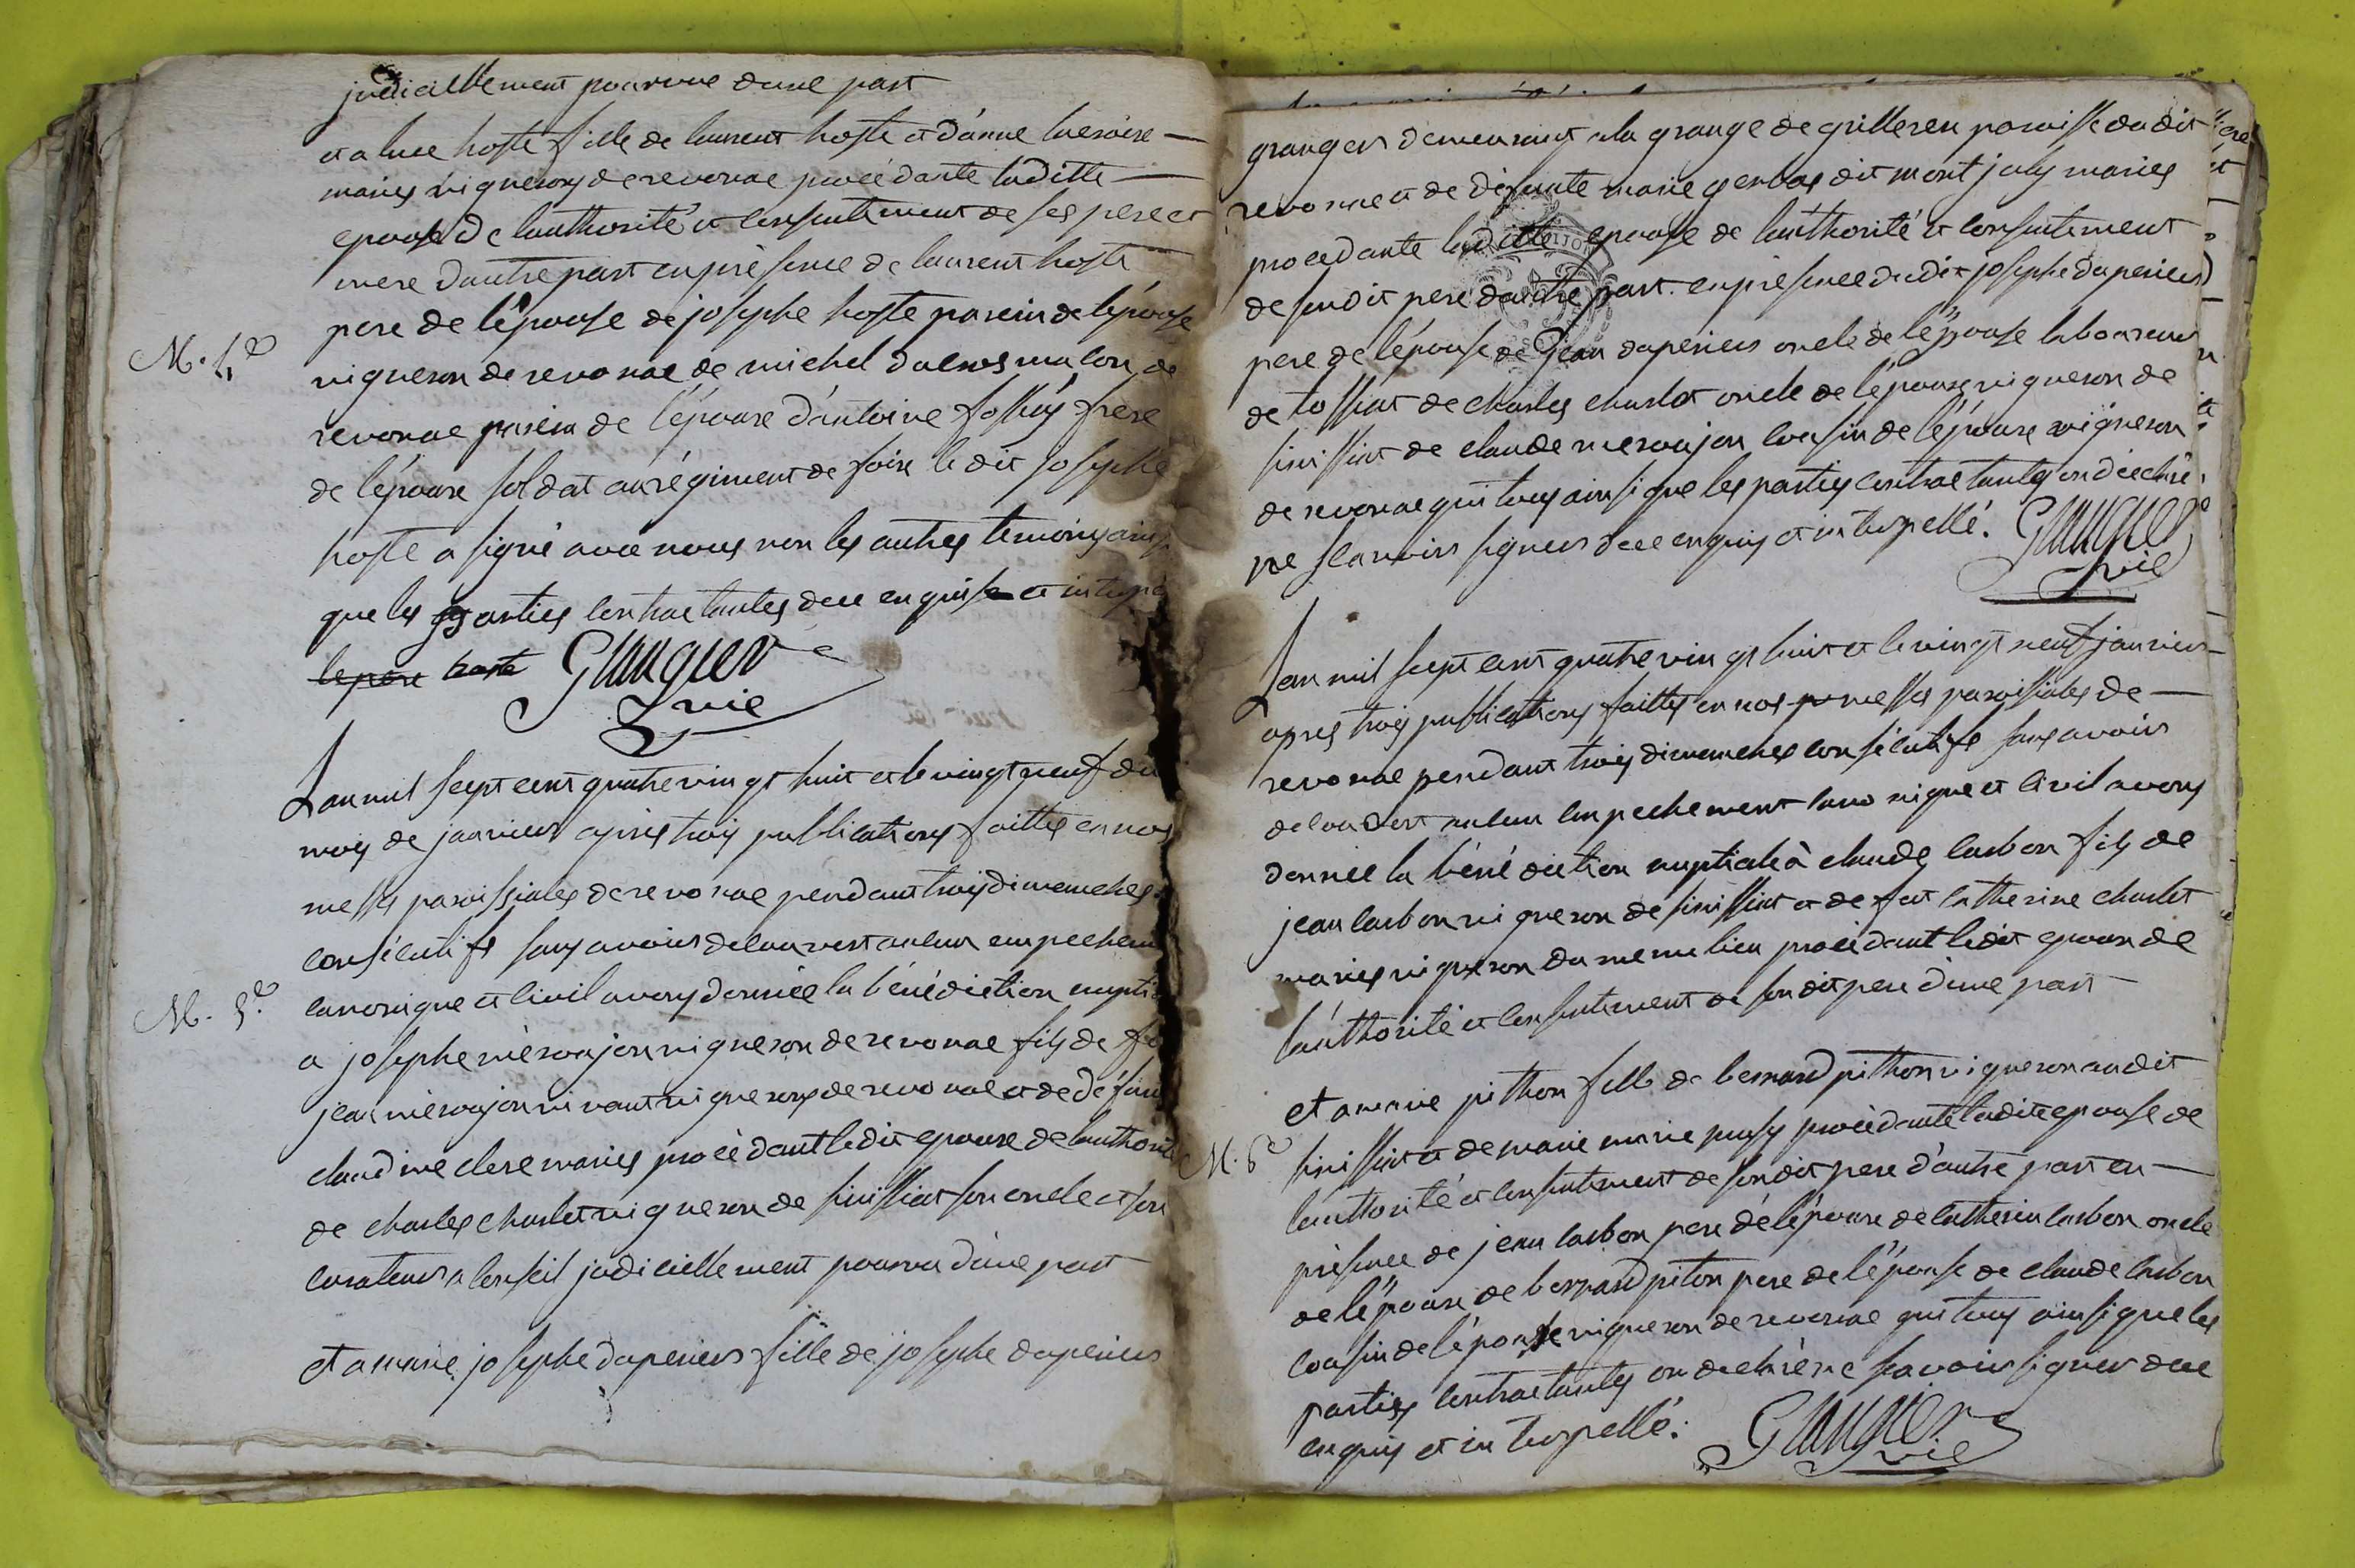 judiciellement pourvue dune part
et a luce hoste fille de laurent hoste et d'anne
mariés vignerons de revonae procédante laditte
epouse De lauthorité et consentement de ses pere et
mere d'autre part en présence de laurent hoste
pere de l'épouse de josephe hoste parein de l'épouse
M. 4e
vigneron de revonae de michel de
revonae parein de l'épouse d'antoine frere
de l'épouse soldat au régiment de foix le dit josephe
hoste a signé avec nous non les autres temoins ainsi
que les parties contractantes dece enquise et
hoste Grangier
vic
Lan mil sept cent quatre vingt huit et le vingt neuf du
mois de janvier apres trois publications faittes en nos
messes paroissiales de revonae pendant trois dimanches
consécutifs sans avoir decouvert aucun
canonique et civil avons donnée la bénédiction
M. 5e
a josephe mervajon vigneron de revonae fils de
jean mervajon vivant vigneron de revonae et de
claudine clere mariés procédant ledit epoux de
de charles charlet vigneron de sinissiat son oncle et son
curateur a conseil judiciellement pourvu d'une part
et a marie josephe daperiers fille de josephe daperiers
granger demeurant a la grange de grillerin paroisse du dit
revonae et de défunte marie gerbas dit montjoly mariés
procedante laditte epouse de l'authorité et consentement
de sondit pere d'autre part. en présence dudit josephe daperiers
pere de l'épouse de jean daperiers oncle de l'épouse laboureur
de tossiat de charles charlet oncle de l'épouse vigneron de
sinissiat de claude mervajon cousin de l'épouse vigneron
de revonae qui tous ainsi que les parties contractantes on déclaré
ne scavoir signer dece enquis et interpellé. Grangier
vic
Lan mil sept cent quatre vingt huit et le vingt neuf janvier
apres trois publications faittes en nos messes paroissiales de
revonae pendant trois dimanches consécutifs sans avoir
decouvert aucun empechement canonique et civil avons
donnée la bénédiction nuptiale à claude carbon fils de
jean carbon vigneron de sinissiat et de feut catherine charlet
mariés vigneron du meme lieu procédant ledit epoux de
l'authorité et consentement de son dit pere d'une part
et a marie pithon fille de bernard pithon vigneron audit
M. 6e
sinissiat et de marie procédante ladite epouse de
l'authorité et consentement de sondit pere d'autre part en
présence de jean carbon pere de l'épouse de catherin carbon oncle
de l'épouse de bernard piton pere de l'épouse de claude carbon
cousin de l'épouse vigneron de revonae qui tous ainsi que les
parties contractantes on declaré ne scavoir signer dece
enquis et interpellé. Grangier
vic